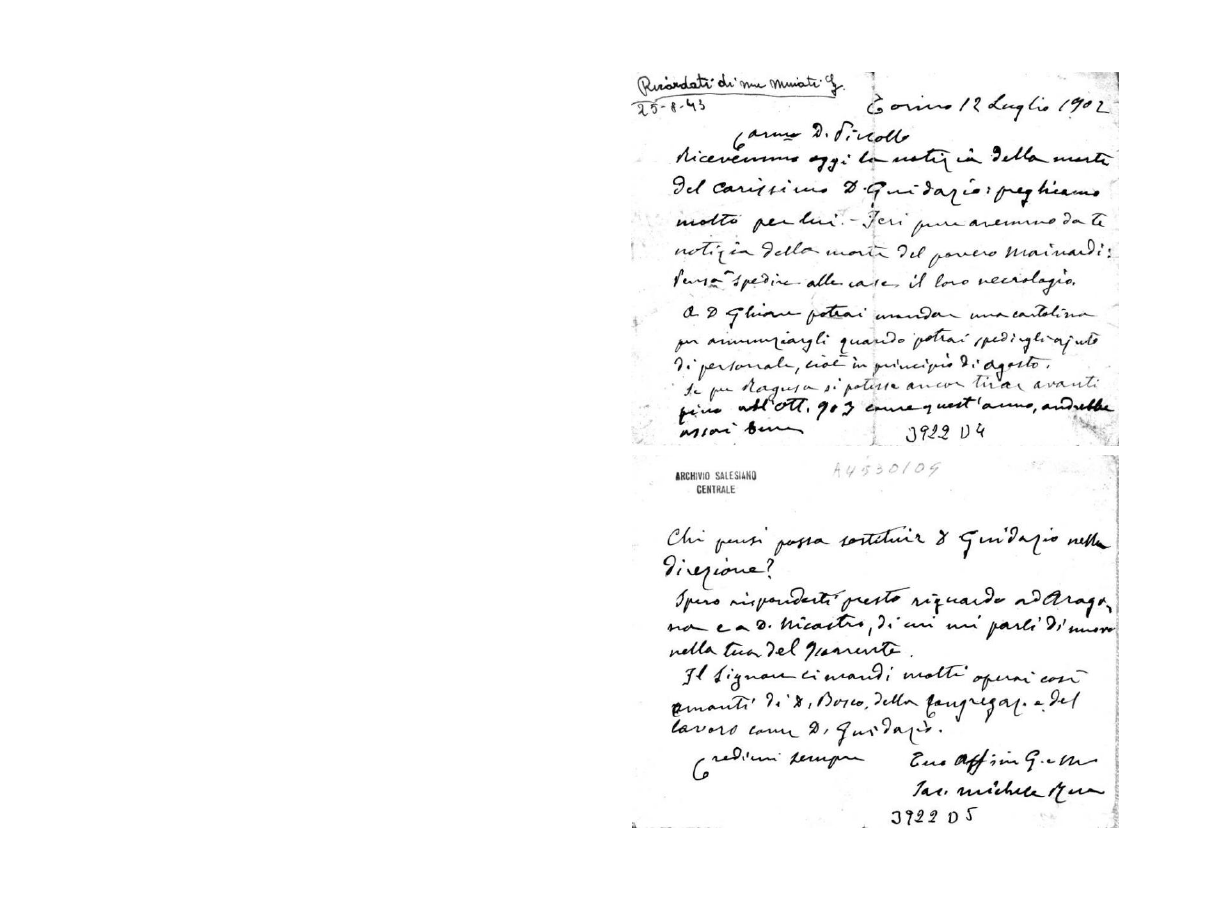 Ricordati di me Miniati G.
25-8-43
Torino 12 Luglio 1902
Carmo D. Piccollo
Ricevemmo oggi la notizia della morte
del carissimo D. Guidazio: preghiamo
molto per lui. - Ieri pure avemmo da te
notizia della morte del povero Mainardi:
spedire alle case il loro necrologio.
A D Ghione potrai mandar una cartolina
per annunziargli quando potrai spedirgli ajuto
di personale, cioè in principio di agosto.
Se per Ragusa si potesse ancor tirar avanti
fino all'Ott. 903 come quest'anno, andrebbe
assai bene
3922 D4
ARCHIVIO SALESIANO
CENTRALE
A4530109
Chi pensi possa sostituir D Guidazio nella
direzione?
Spero risponderti presto riguardo ad Arago,
na e a D. Nicastro, di cui mi parli di nuovo
nella tua del 9 corrente.
Il Signore ci mandi molti operai così
amanti di D. Bosco, della Congregaz. e del
lavoro come D. Guidazio.
Credimi sempre
Tuo Aff.mo in G. e M.
Sac. Michele Rua
3922 D5